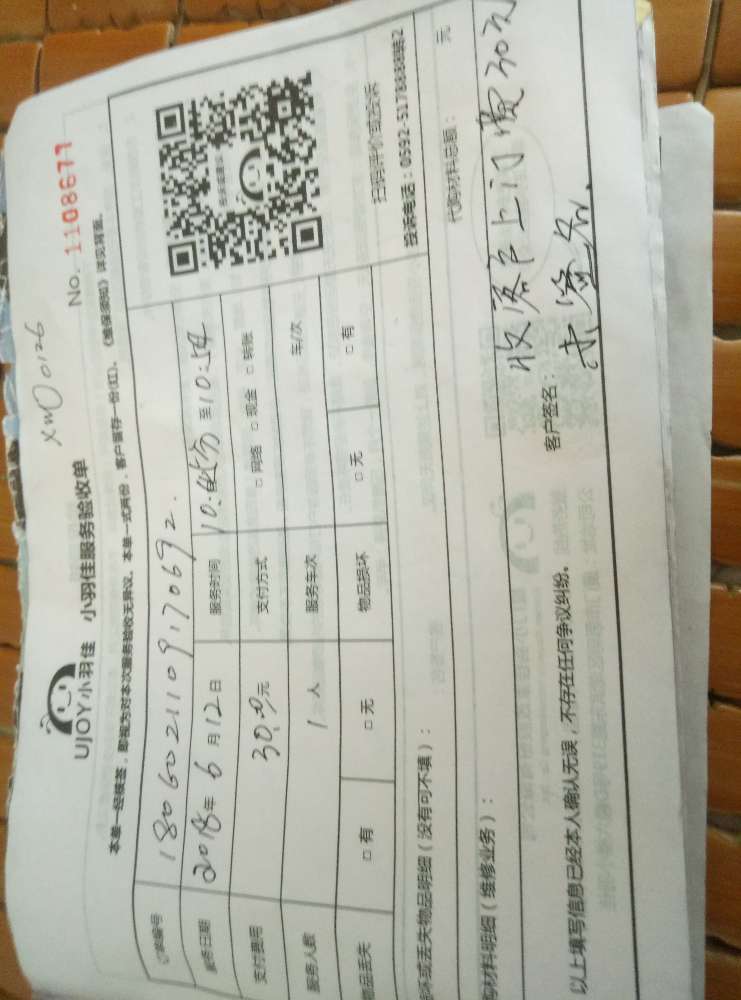 XM00126
UJOY小羽佳 小羽佳服务验收单
No. 1108677
本单一经核签，即视为对本次服务验收无异议。本单一式两份，客户留存一份(红)。《维保须知》详见背面。
订单编号 180602110917069 2.
服务日期 2018年 6 月 12 日 服务时间 至 10:54
支付费用 30.00元 支付方式 □ 网络 □ 现金 □ 转账
服务人数 1 人 服务车次 车/次
物品丢失 □ 有 □ 无 物品损坏 □ 无 □ 有
扫码评价或投诉
投诉电话：0592-5178888转2
坏或丢失物品明细（没有可不填）：
购材料明细（维修业务）：
代购材料总额： 元
收 上门费30元
以上填写信息已经本人确认无误，不存在任何争议纠纷。
客户签名：